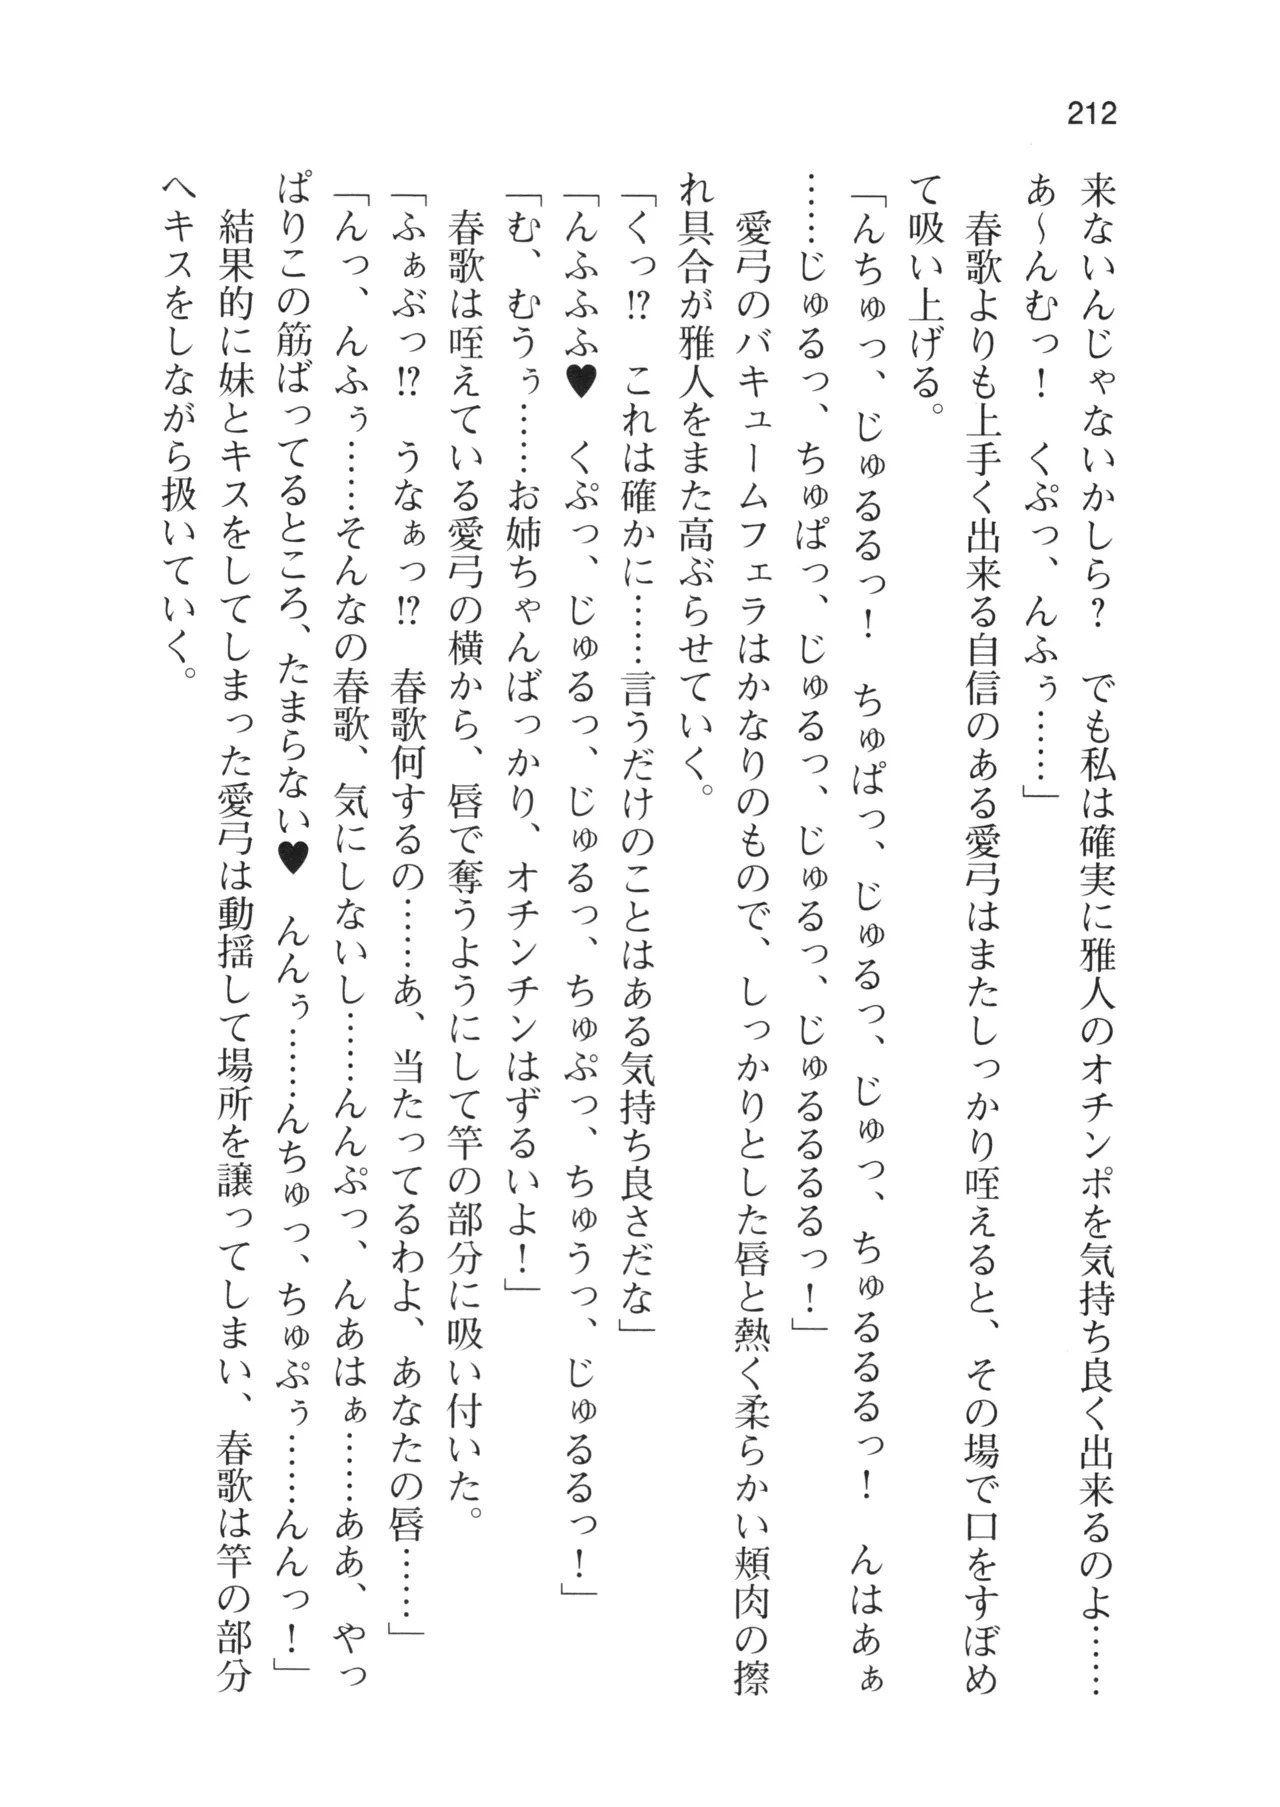 212
来ないんじゃないかしら? でも私は確実に雅人のオチンポを気持ち良く出来るのよ……
あ〜んむっ! くぷっ、んふぅ……」
春歌よりも上手く出来る自信のある愛弓はまたしっかり咥えると、その場で口をすぼめ
て吸い上げる。
「んちゅっ、じゅるるっ! ちゅぱっ、じゅるっ、じゅっ、ちゅるるるっ! んはあぁ
……じゅるっ、ちゅぱっ、じゅるっ、じゅるっ、じゅるるるるっ!」
愛弓のバキュームフェラはかなりのもので、しっかりとした唇と熱く柔らかい頬肉の擦
れ具合が雅人をまた高ぶらせていく。
「くっ!? これは確かに……言うだけのことはある気持ち良さだな」
「んふふふ♥ くぷっ、じゅるっ、じゅるっ、ちゅぷっ、ちゅうっ、じゅるるっ!」
「む、むうぅ……お姉ちゃんばっかり、オチンチンはずるいよ!」
春歌は咥えている愛弓の横から、唇で奪うようにして竿の部分に吸い付いた。
「ふぁぶっ!? うなぁっ!? 春歌何するの……あ、当たってるわよ、あなたの唇……」
「んっ、んふぅ……そんなの春歌、気にしないし……んんぷっ、んあはぁ……ああ、やっ
ぱりこの筋ばってるところ、たまらない♥ んんぅ……んちゅっ、ちゅぷぅ……んんっ!」
結果的に妹とキスをしてしまった愛弓は動揺して場所を譲ってしまい、春歌は竿の部分
へキスをしながら扱いていく。